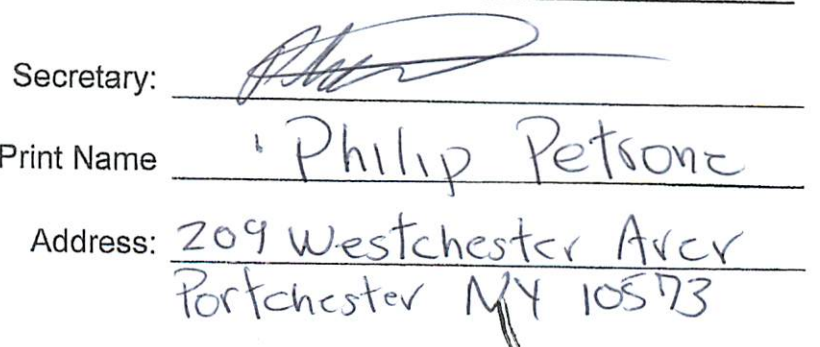 Secretary:
Print Name Philip Petrone
Address: 209 Westchester Aver
Portchester NY 10573